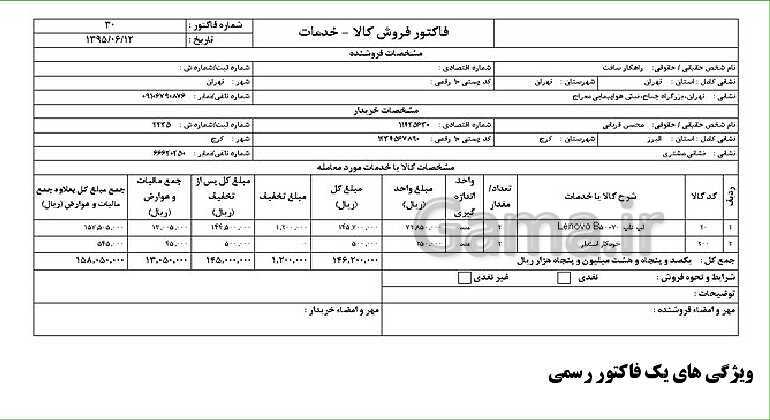 فاکتور فروش کالا - خدمات
شماره فاکتور : ۳۰
تاریخ : ۱۳۹۵/۰۶/۱۲
مشخصات فروشنده
نام شخص حقیقی / حقوقی : راهکار ساخت شماره اقتصادی : شماره ثبت/شماره ش :
نشانی کامل : استان : تهران شهرستان : تهران کد پستی ۱۰ رقمی : شهر : تهران
نشانی : تهران،بزرگراه جناح،نبش هواپیمایی معراج شماره تلفن/نمابر : ۰۹۱۰۶۷۹۰۸۷۶
مشخصات خریدار
نام شخص حقیقی / حقوقی : محسن قربانی شماره اقتصادی : شماره ثبت/شماره ش :
نشانی کامل : استان : البرز شهرستان : کرج کد پستی ۱۰ رقمی : ۱۲۳۴۵۶۷۸۹۰ شهر : کرج
نشانی : نشانی مشتری شماره تلفن/نمابر :
مشخصات کالا یا خدمات مورد معامله
ردیف کد کالا شرح کالا یا خدمات تعداد/مقدار واحد اندازه گیری مبلغ واحد (ریال) مبلغ کل (ریال) مبلغ تخفیف مبلغ کل پس از تخفیف (ریال) جمع مالیات و عوارض (ریال) جمع مبلغ کل بعلاوه جمع مالیات و عوارض (ریال)
۱ لپ تاپ Lenovo ۲ عدد
۲ خودکار استدلر ۲ عدد ۵۰۰,۰۰۰ ۰ ۵۰۰,۰۰۰ ۴۵,۰۰۰ ۵۴۵,۰۰۰
جمع کل : یکصد و پنجاه و هشت میلیون و پنجاه هزار ریال ۱۴۶,۲۰۰,۰۰۰ ۱,۲۰۰,۰۰۰ ۱۴۵,۰۰۰,۰۰۰ ۱۳,۰۵۰,۰۰۰ ۱۵۸,۰۵۰,۰۰۰
شرایط و نحوه فروش : نقدی غیر نقدی
توضیحات :
مهر و امضاء فروشنده : مهر و امضاء خریدار :
Gama.ir
ویژگی های یک فاکتور رسمی